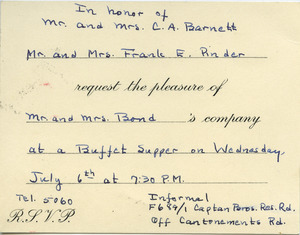 In honor of
Mr. and Mrs. C. A. Barnett
Mr. and Mrs. Frank E. Pinder
request the pleasure of
Mr. and Mrs. Bond 's company
at a Buffet Supper on Wednesday,
July 6th at 7:30 P.M.
Tel. 5060
R.S.V.P.
Informal
F639/1 Captan Poros. Res. Rd.
Off Cantonements Rd.